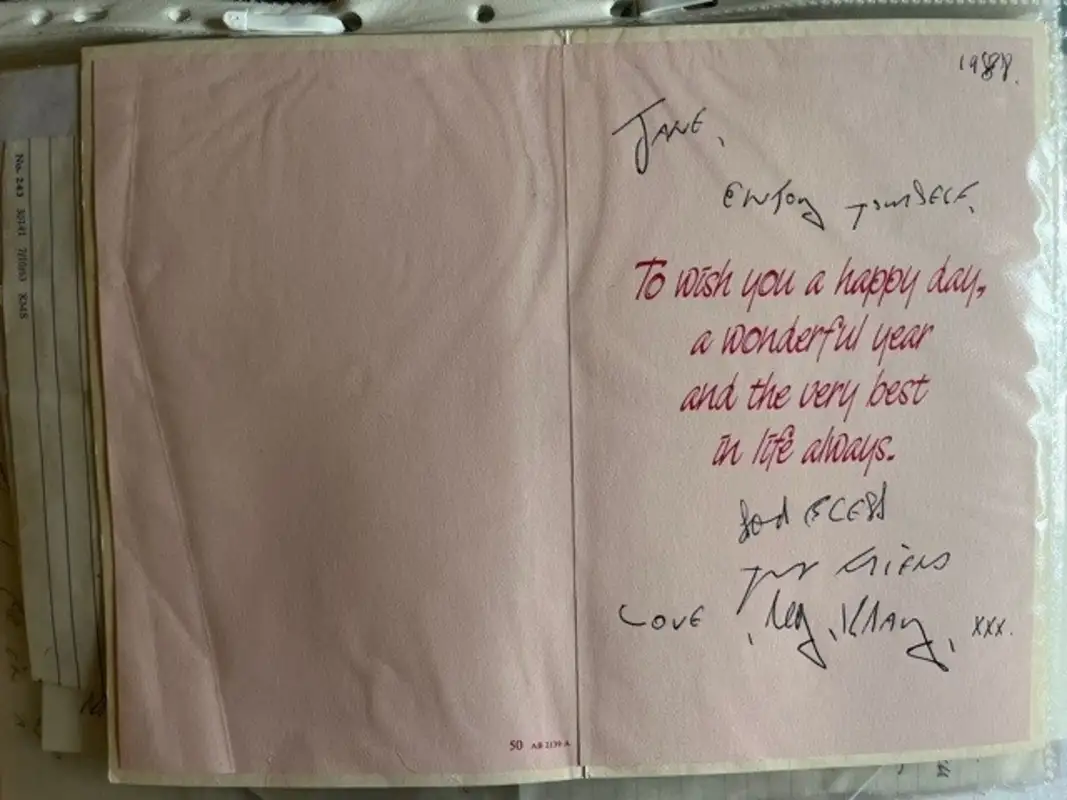 1988.
JANE,
ENJOY YOURSELF,
To wish you a happy day,
a wonderful year
and the very best
in life always.
God BLESS
Your FRIEND
LOVE, Reg, Kray, xxx.
50 AB 2139 A
No. 243 38141 KMS